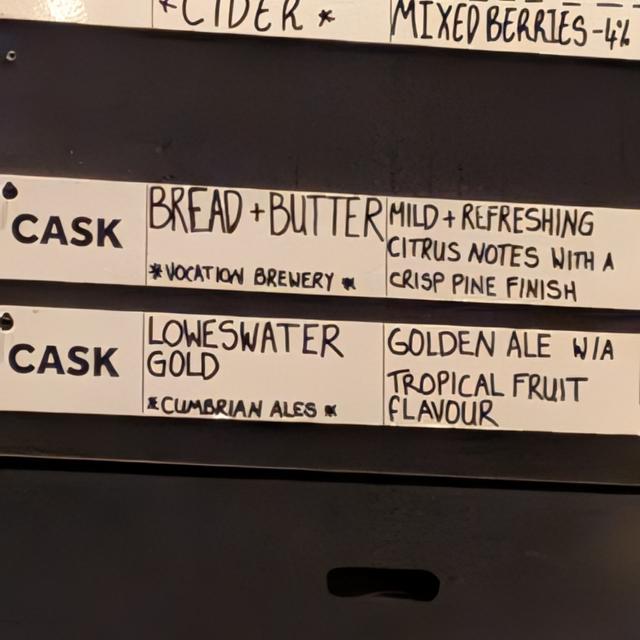 *CIDER*
MIXED BERRIES-4%
CASK
BREAD+BUTTER
*VOCATION BREWERY*
MILD+REFRESHING
CITRUS NOTES WITH A
CRISP PINE FINISH
CASK
LOWESWATER
GOLD
*CUMBRIAN ALES*
GOLDEN ALE W/A
TROPICAL FRUIT
FLAVOUR